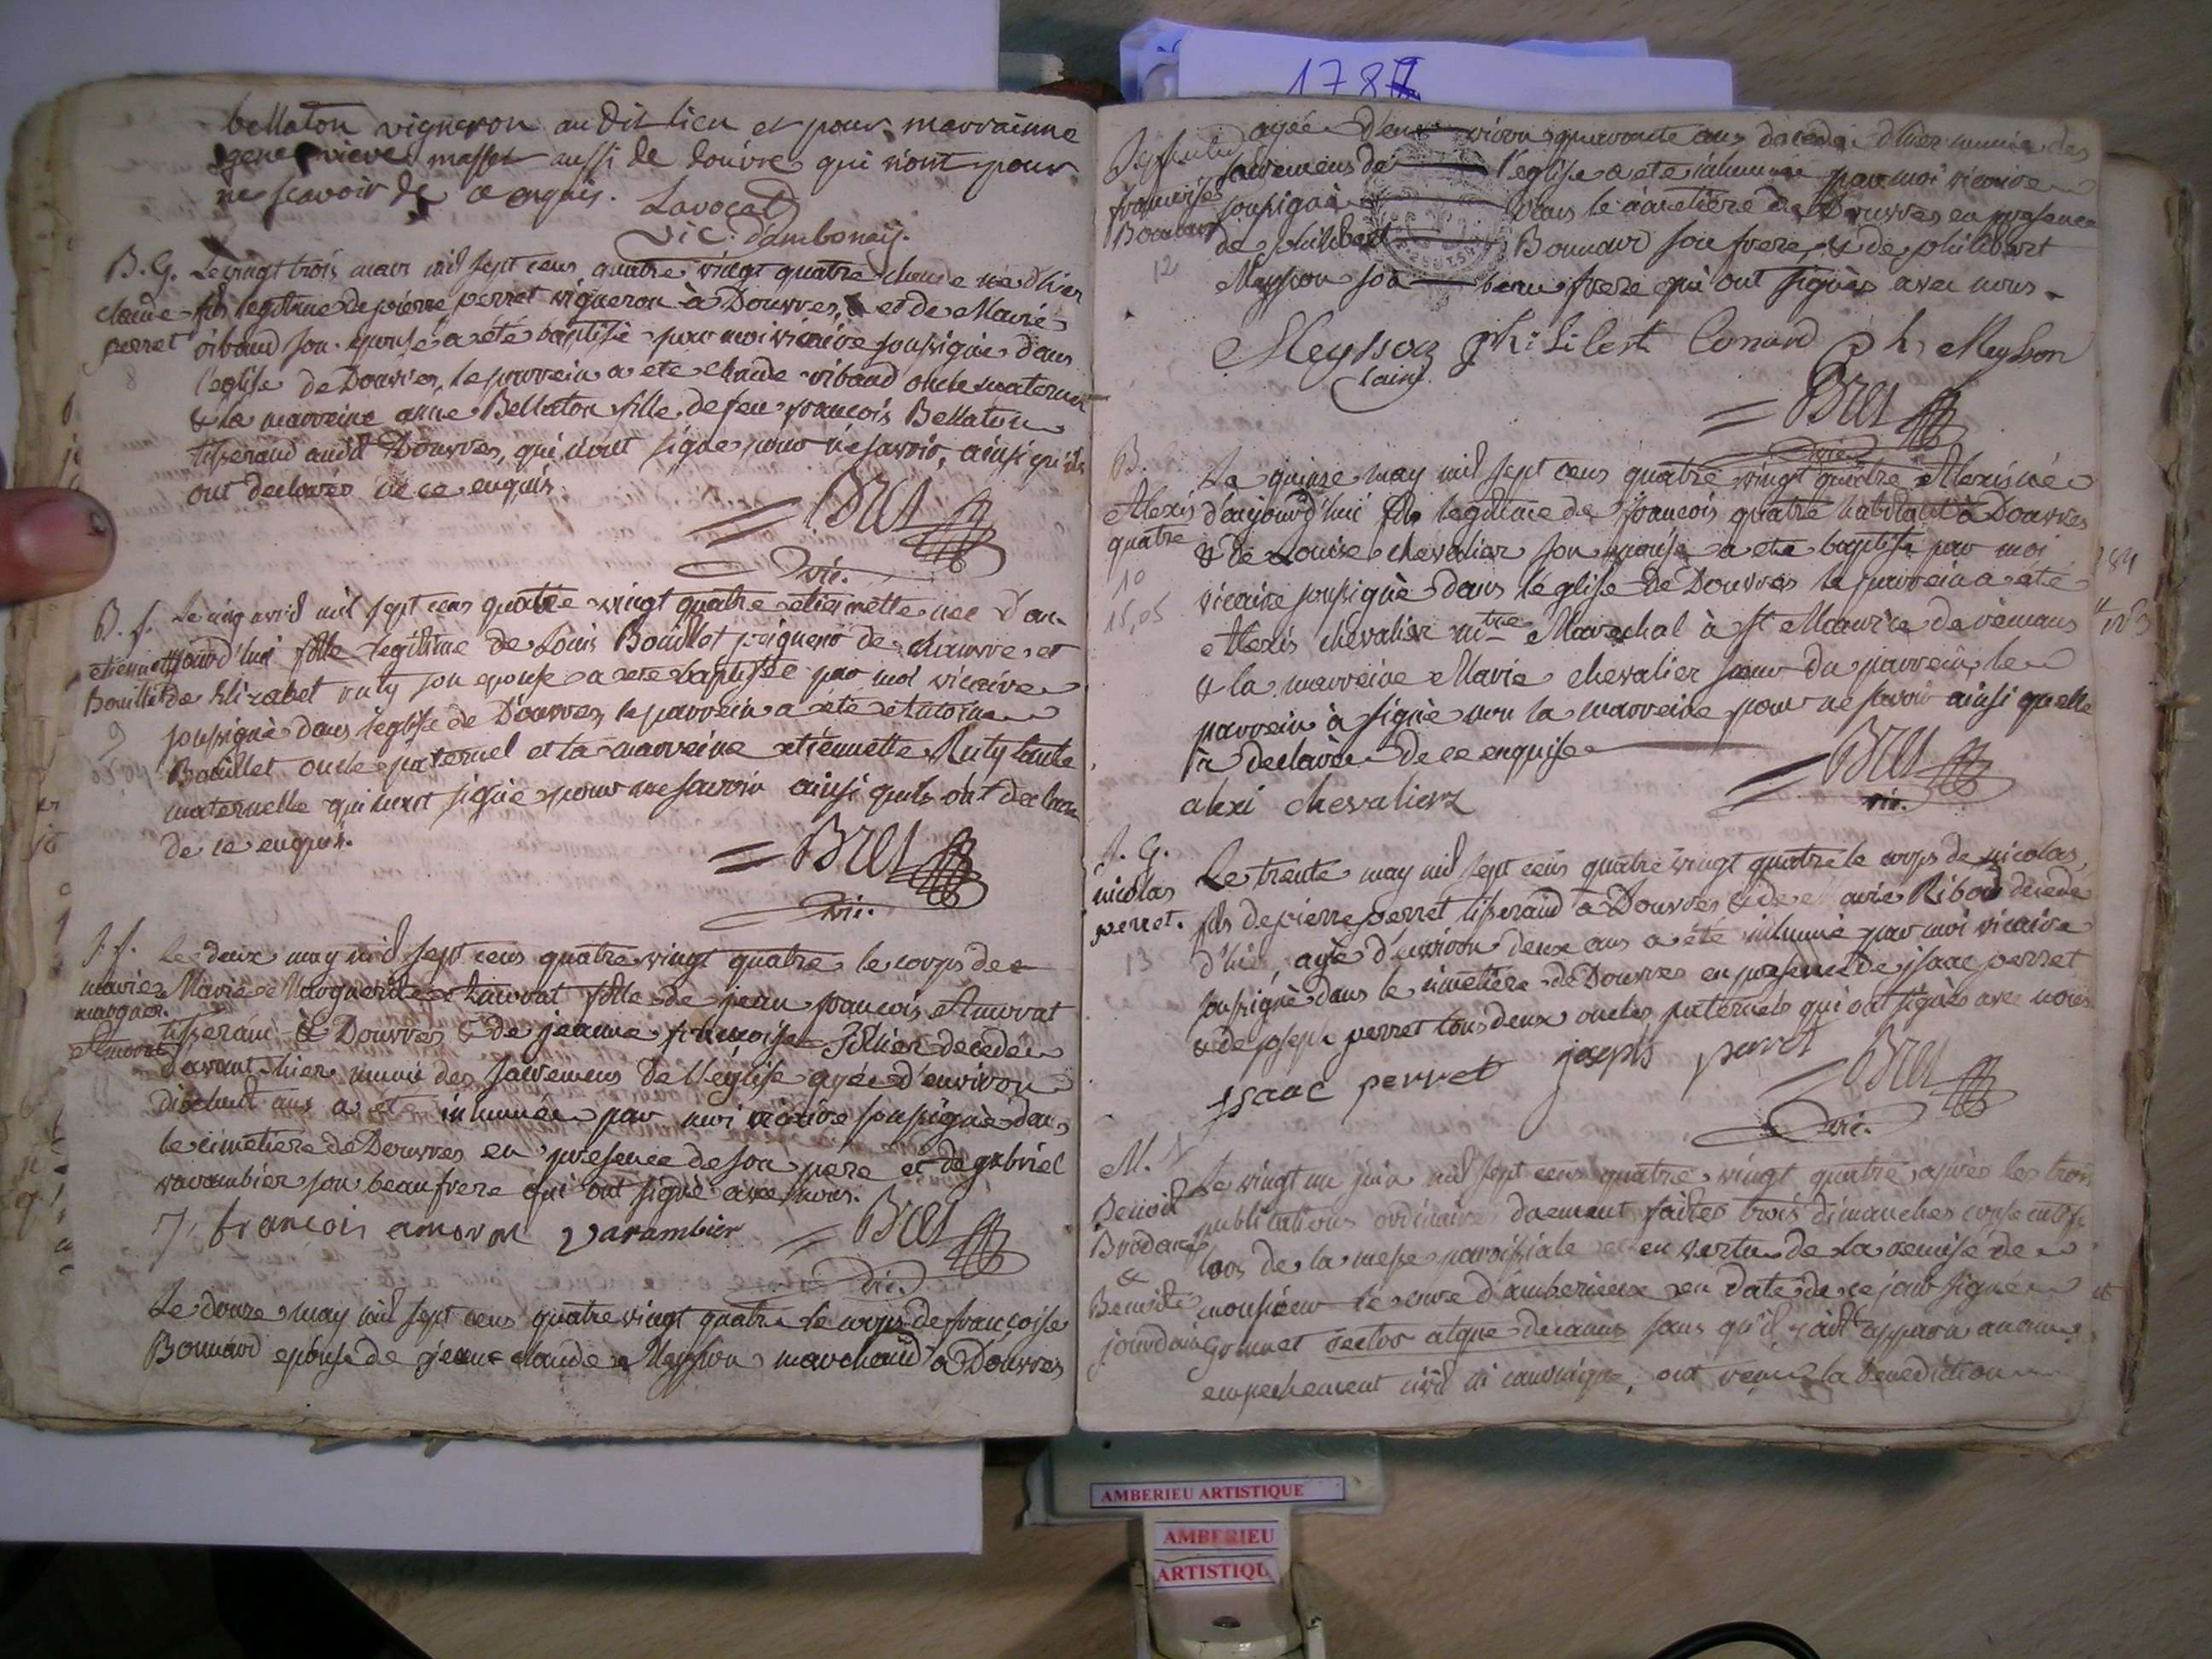 bellaton vigneron au dit lieu et pour marrainne
genevieve massel aussi de douvre qui n'ont pour
ne scavoir de ce enquis. Lavocat
vic. d'ambonay.
B. G.
claude
perret
8
Le vingt trois mars mil sept cens quatre vingt quatre claude né d'hier
fils legitime de pierre perret vigneron à Douvres, et de Marie
ribaud son epouse a été baptisé par moi vicaire soussigné dans
l'eglise de Douvres, le parrein a eté claude ribaud oncle maternel
& la marreine anne Bellaton fille de feu françois Bellaton
tisserand audit Douvres, qui n'ont signé pour ne savoir, ainsi qu'ils
ont declarés de ce enquis.
= Bret
vic.
B. f.
etiennette
Bouillet
9
Le cinq avril mil sept cens quatre vingt quatre etiennette née d'au-
jourd'hui fille legitime de Louis Bouillet peigneur de chanvre et
de Elizabet ruty son epouse a été baptisée par moi vicaire
soussigné dans l'eglise de Douvres, le parrein a été Antoine
Bouillet oncle paternel et la marreine etiennette Ruty tante
maternelle qui n'ont signé pour ne savoir ainsi qu'ils ont declaré
de ce enquis.
= Bret
vic.
S. f.
marie
marguer.
Amorat
Le deux may mil sept cens quatre vingt quatre le corps de
Marie Marguerite Amorat fille de jean françois Amorat
tisserand à Douvres & de jeanne françoise decedée
d'avant hier munie des sacremens de l'église agée d'environ
dixhuit ans a eté inhumée par moi vicaire soussigné dans
le cimetiere de Douvres en presence de son pere et de gabriel
varambier son beau frere qui ont signé avec nous.
J. françois amorat varambier = Bret
vic.
Le douze may mil sept cens quatre vingt quatre le corps de françoise
Bonnard epouse de jean claude Meysson marchand à Douvres
178
françoise
Bonnard
12
agée d'environ quarante ans decedée d'hier munie des
sacremens de l'église a eté inhumée par moi vicaire
soussigné dans le cimetière de Douvres en presence
de philibert Bonnard son frere, & de philibert
Meysson son beau frere qui ont signés avec nous.
Meysson philibert bonard ph Meysson
l'ainé
= Bret
vic.
B.
Alexis
quatre
10
15,05
Le quinze may mil sept cens quatre vingt quatre Alexis né
d'aujourd'hui fils legitime de françois quatre habitant à Douvres
& de Louise chevalier son epouse a eté baptisé par moi
vicaire soussigné dans l'eglise de Douvres le parrein a été
Alexis chevalier mtre Marechal à St Maurice de rémans
& la marreine Marie chevalier sœur du parrein, le
parrein à signé non la marreine pour ne savoir ainsi quelle
à declarée de ce enquise
= Bret
vic.
alexi chevalier
S. G.
nicolas
perret.
13
Le trente may mil sept cens quatre vingt quatre le corps de nicolas,
fils de pierre perret tisserand à Douvres & de marie Riboud decedé
d'hier, agé d'environ deux ans a été inhumé par moi vicaire
soussigné dans le cimetière de Douvres en presence de isaac perret
& de joseph perret tous deux oncles paternels qui ont signés avec nous.
isaac perret joseph perret = Bret
vic.
M.
Benoit
&
Benoite
jourdain
Le vingt un juin mil sept cens quatre vingt quatre après les trois
publications ordinaires duement faites trois dimanches consecutifs
lors de la messe paroissiale et en vertu de la remise de
monsieur le curé d'amberieux en date de ce jour signée
rector atque decanus sans qu'il y ait apparu aucun
empechement civil ni canonique, ont reçu la benediction
AMBERIEU ARTISTIQUE
AMBERIEU
ARTISTIQU